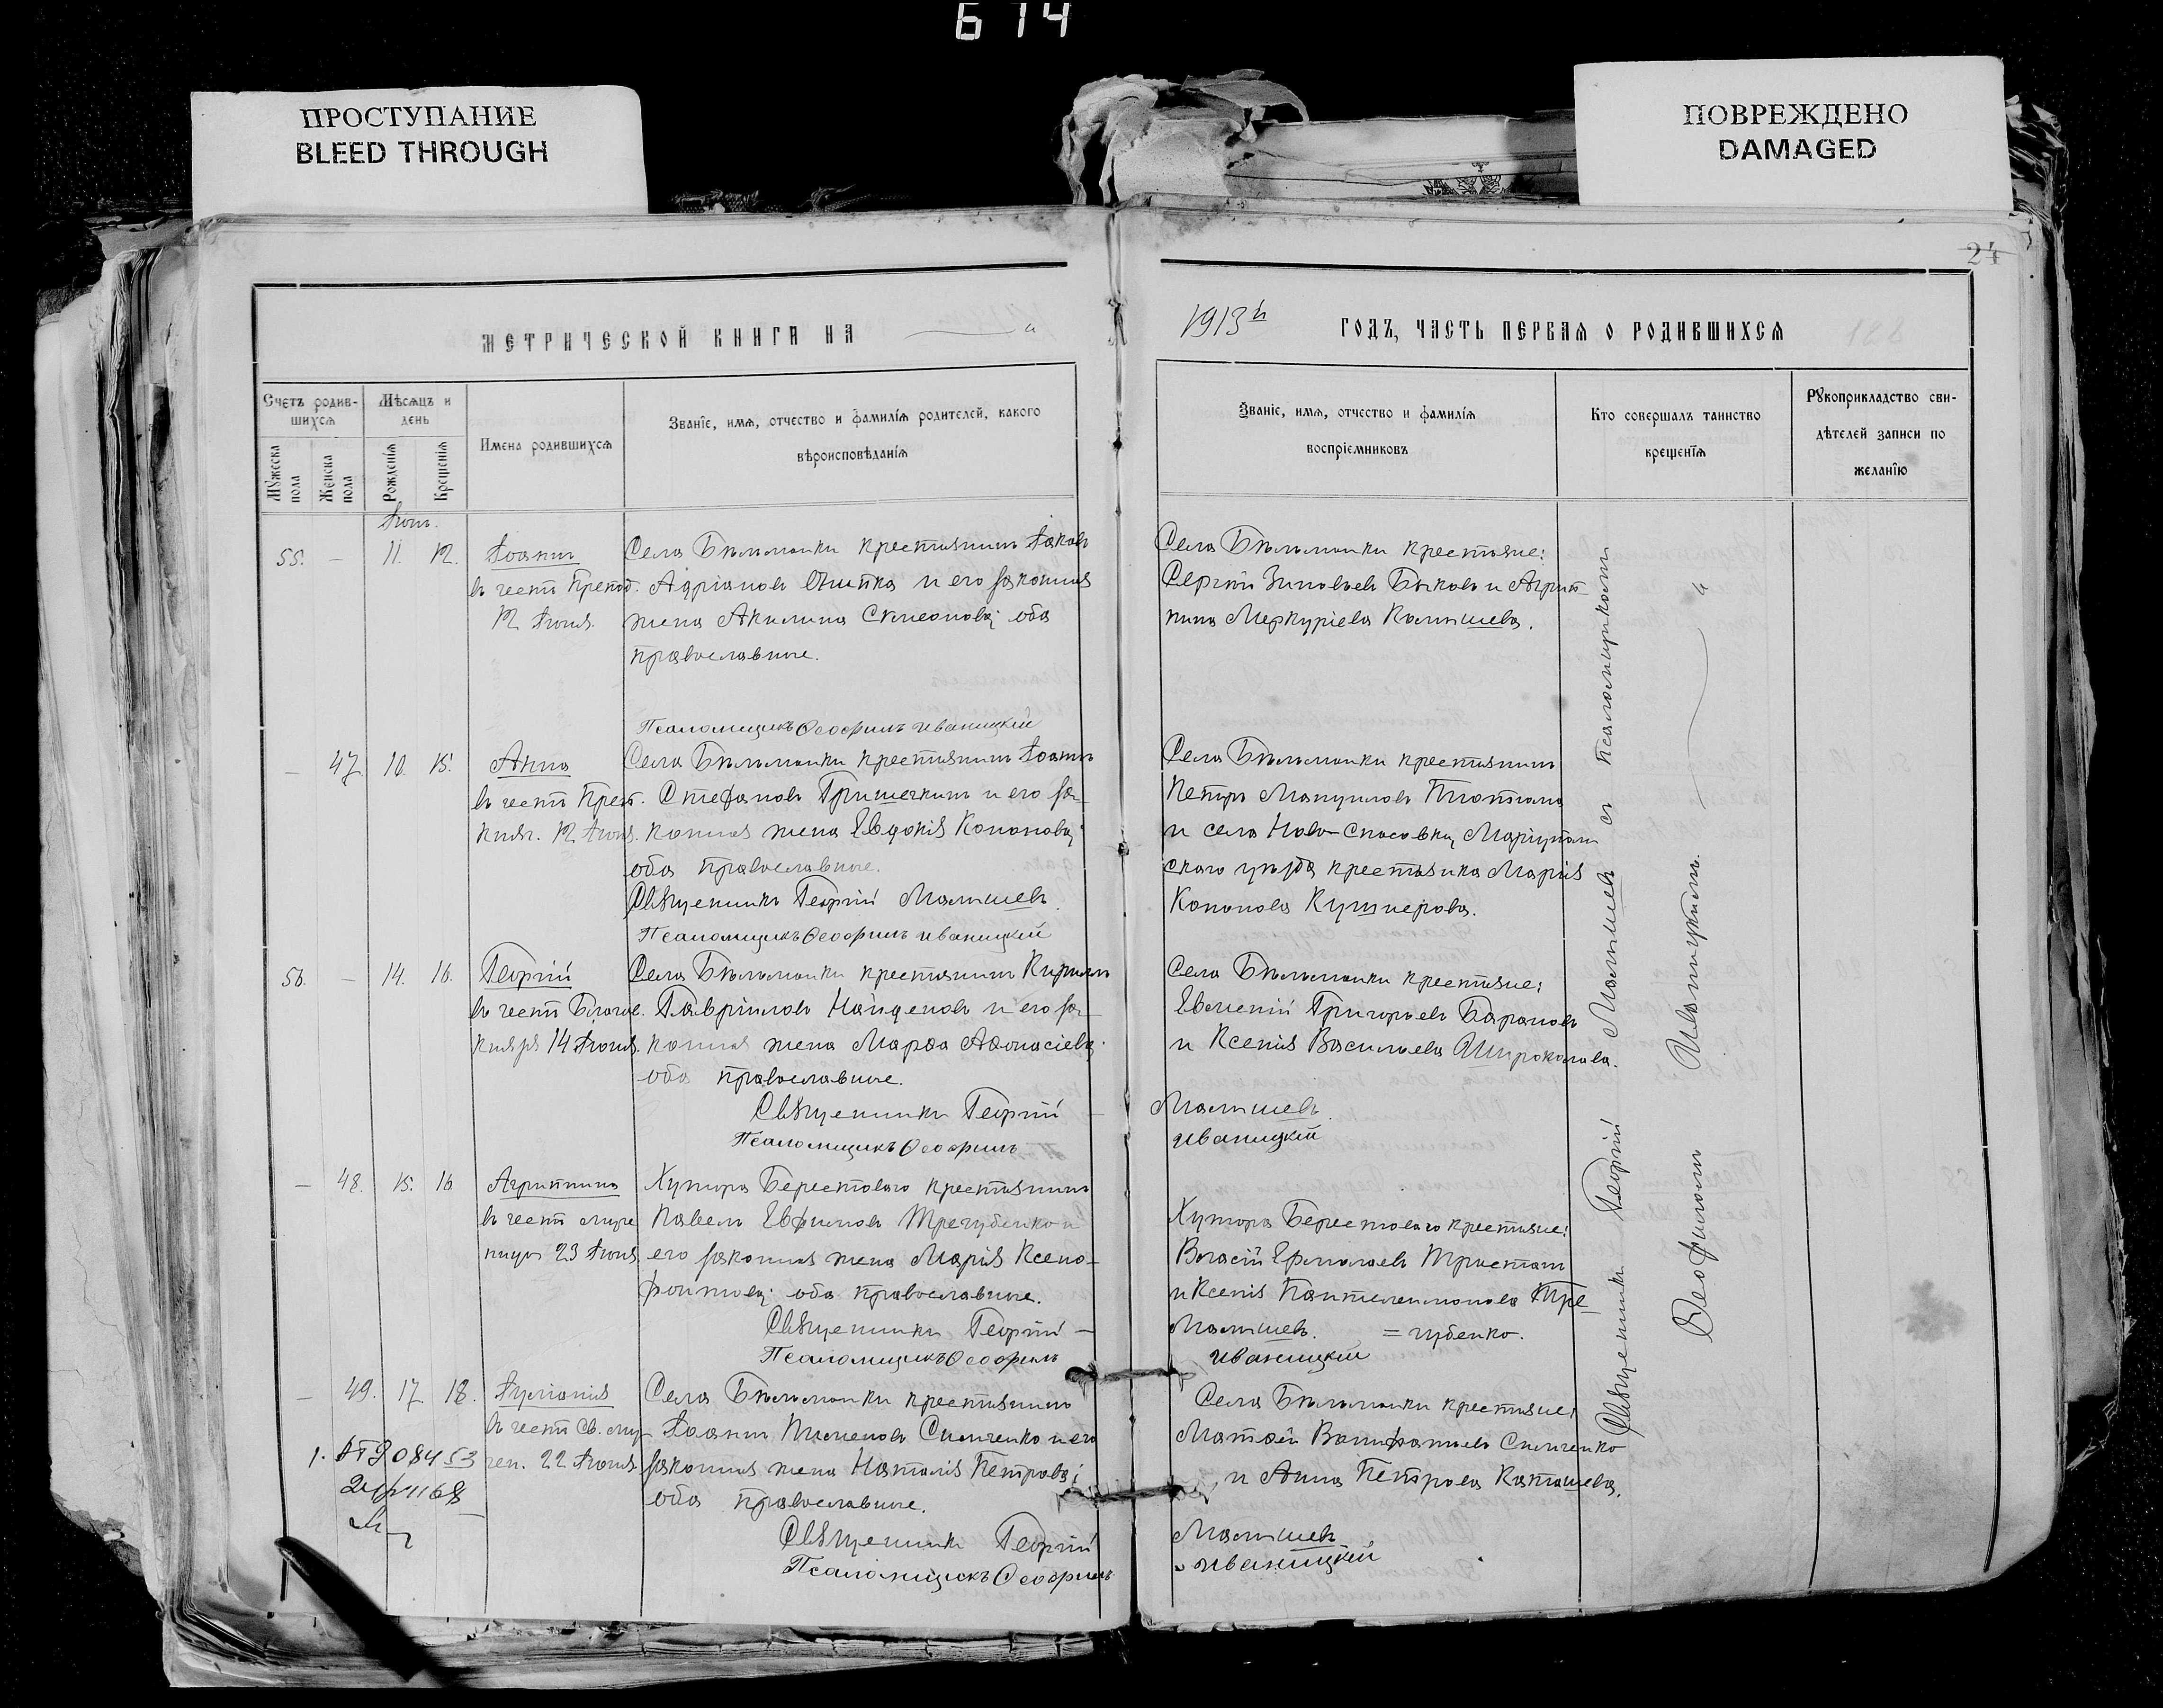 614
ПРОСТУПАНИЕ
BLEED THROUGH
ПОВРЕЖДЕНО
DAMAGED
24
МЕТРИЧЕСКОЙ КНИГИ НА
1913й
ГОДЪ, ЧАСТЬ ПЕРВАЯ О РОДИВШИХСЯ
Счетъ родив-
шихся
Мѣсяцъ и
день
Мужеска
пола
Женска
пола
Рожденія
Крещенія
Имена родившихся
Званіе, имя, отчество и фамилія родителей, какого
вѣроисповѣданія
Званіе, имя, отчество и фамилія
воспріемниковъ
Кто совершалъ таинство
крещенія
Рукоприкладство сви-
дѣтелей записи по
желанію
55. — 11. 12. Іоаннъ
въ честь Препод.
12 Іюня.
Села Бѣльманки крестьянинъ Іаковъ
Адріановъ и его законная
жена Акилина Симеонова; оба
православные.
Псаломщикъ Ѳеофилъ Иваницкій
Села Бѣльманки крестьяне:
Сергій Зиновьевъ Быковъ и Агрип-
пина Меркуріева
— 47. 10. 15. Анна
въ честь Преп.
княг. 12 Іюня.
Села Бѣльманки крестьянинъ Іоаннъ
Стефановъ Гришечкинъ и его за-
конная жена Евдокія Кононова;
оба православные.
Священникъ Георгій Малышевъ
Псаломщикъ Ѳеофилъ Иваницкій
Села Бѣльманки крестьянинъ
Петръ Мануиловъ
и села Ново-Спасовки, Маріуполь
скаго уѣзда крестьянка Марія
Кононова Кушнерова.
56. — 14. 16. Георгій
въ честь Благов.
князя 14 Іюня.
Села Бѣльманки крестьянинъ Кириллъ
Гавріиловъ Найденовъ и его за-
конная жена Марѳа Аѳонасіева;
оба православные.
Священникъ Георгій — Малышевъ
Псаломщикъ Ѳеофилъ Иваницкій
Села Бѣльманки крестьяне:
Евгеній Григорьевъ Барановъ
и Ксенія Васильева
— 48. 15. 16 Агриппина
въ честь муче
ницы 23 Іюня.
Хутора Берестоваго крестьянинъ
Павелъ Евфимовъ Трегубенко и
его законная жена Марія Ксено-
фонтова; оба православные.
Священникъ Георгій — Малышевъ.
Псаломщикъ Ѳеофилъ Иваницкій
Хутора Берестоваго крестьяне:
Власій Ермолаевъ Тристанъ
и Ксенія Пантелеимонова Тре
= губенко.
— 49. 17. 18. Іуліанія
въ честь Св. му-
чен. 22 Іюня.
Села Бѣльманки крестьянинъ
Іоаннъ Пименовъ Симченко и его
законная жена Наталія Петрова;
оба православные.
Священникъ Георгій Малышевъ
Псаломщикъ Ѳеофилъ Иваницкій
Села Бѣльманки крестьяне:
Матѳей Вонифатьевъ Симченко
и Анна Петрова
Священникъ Георгій Малышевъ съ Псаломщикомъ
Ѳеофиломъ Иваницкимъ.